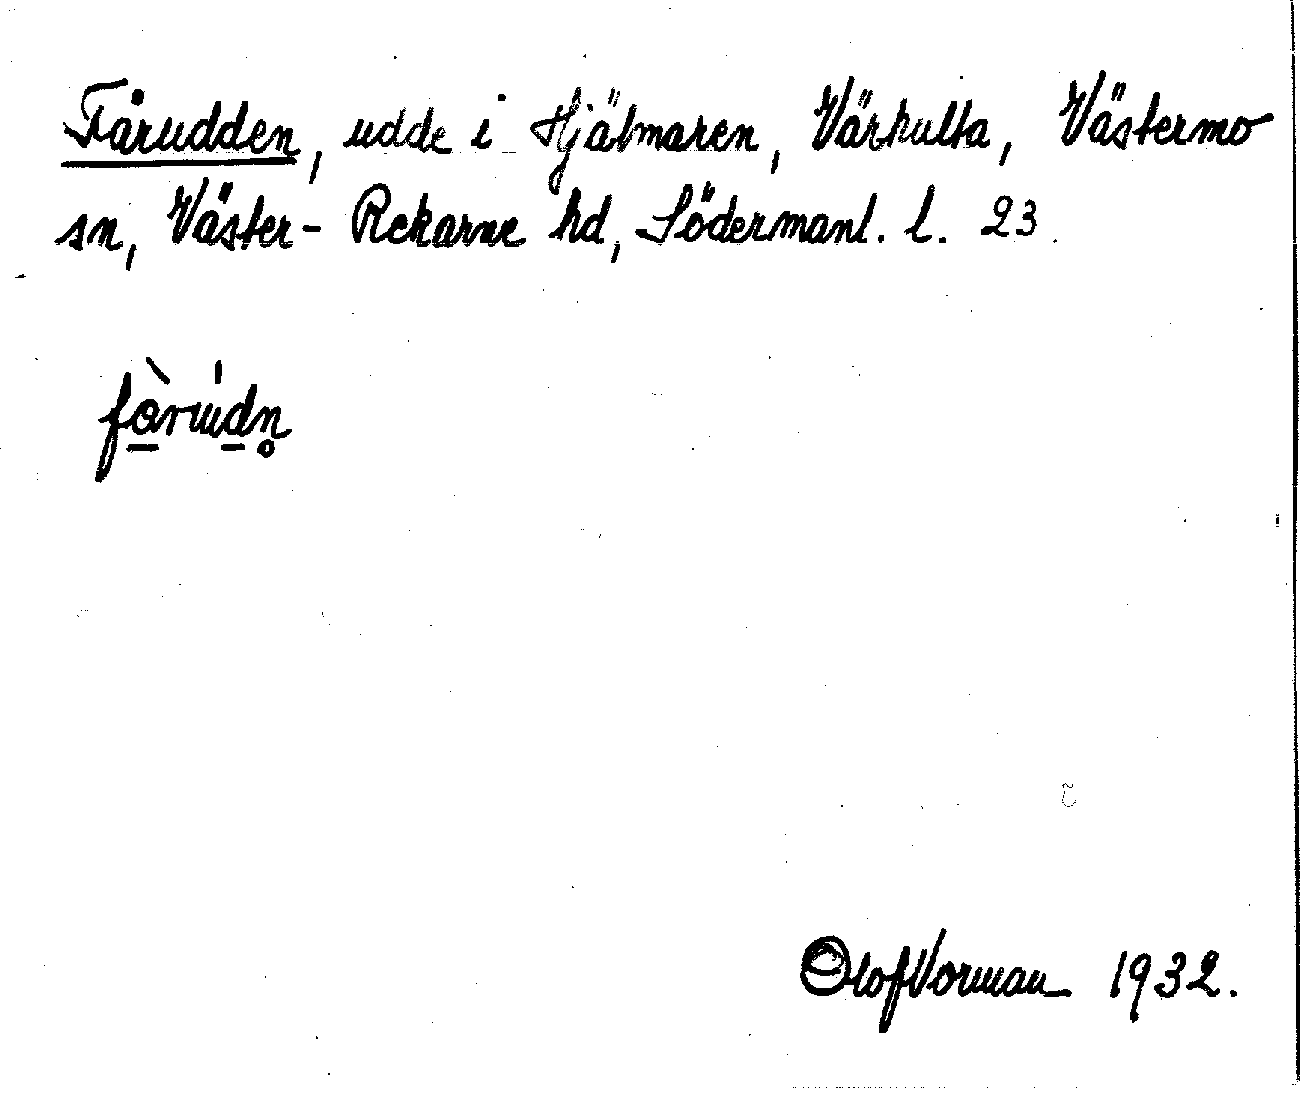 Fårudden, udde i Hjälmaren, Värhulta, Västermo
sn, Väster-Rekarne hd, Södermanl. l. 23.
fòru̍dn̥
Olof Vorman 1932.